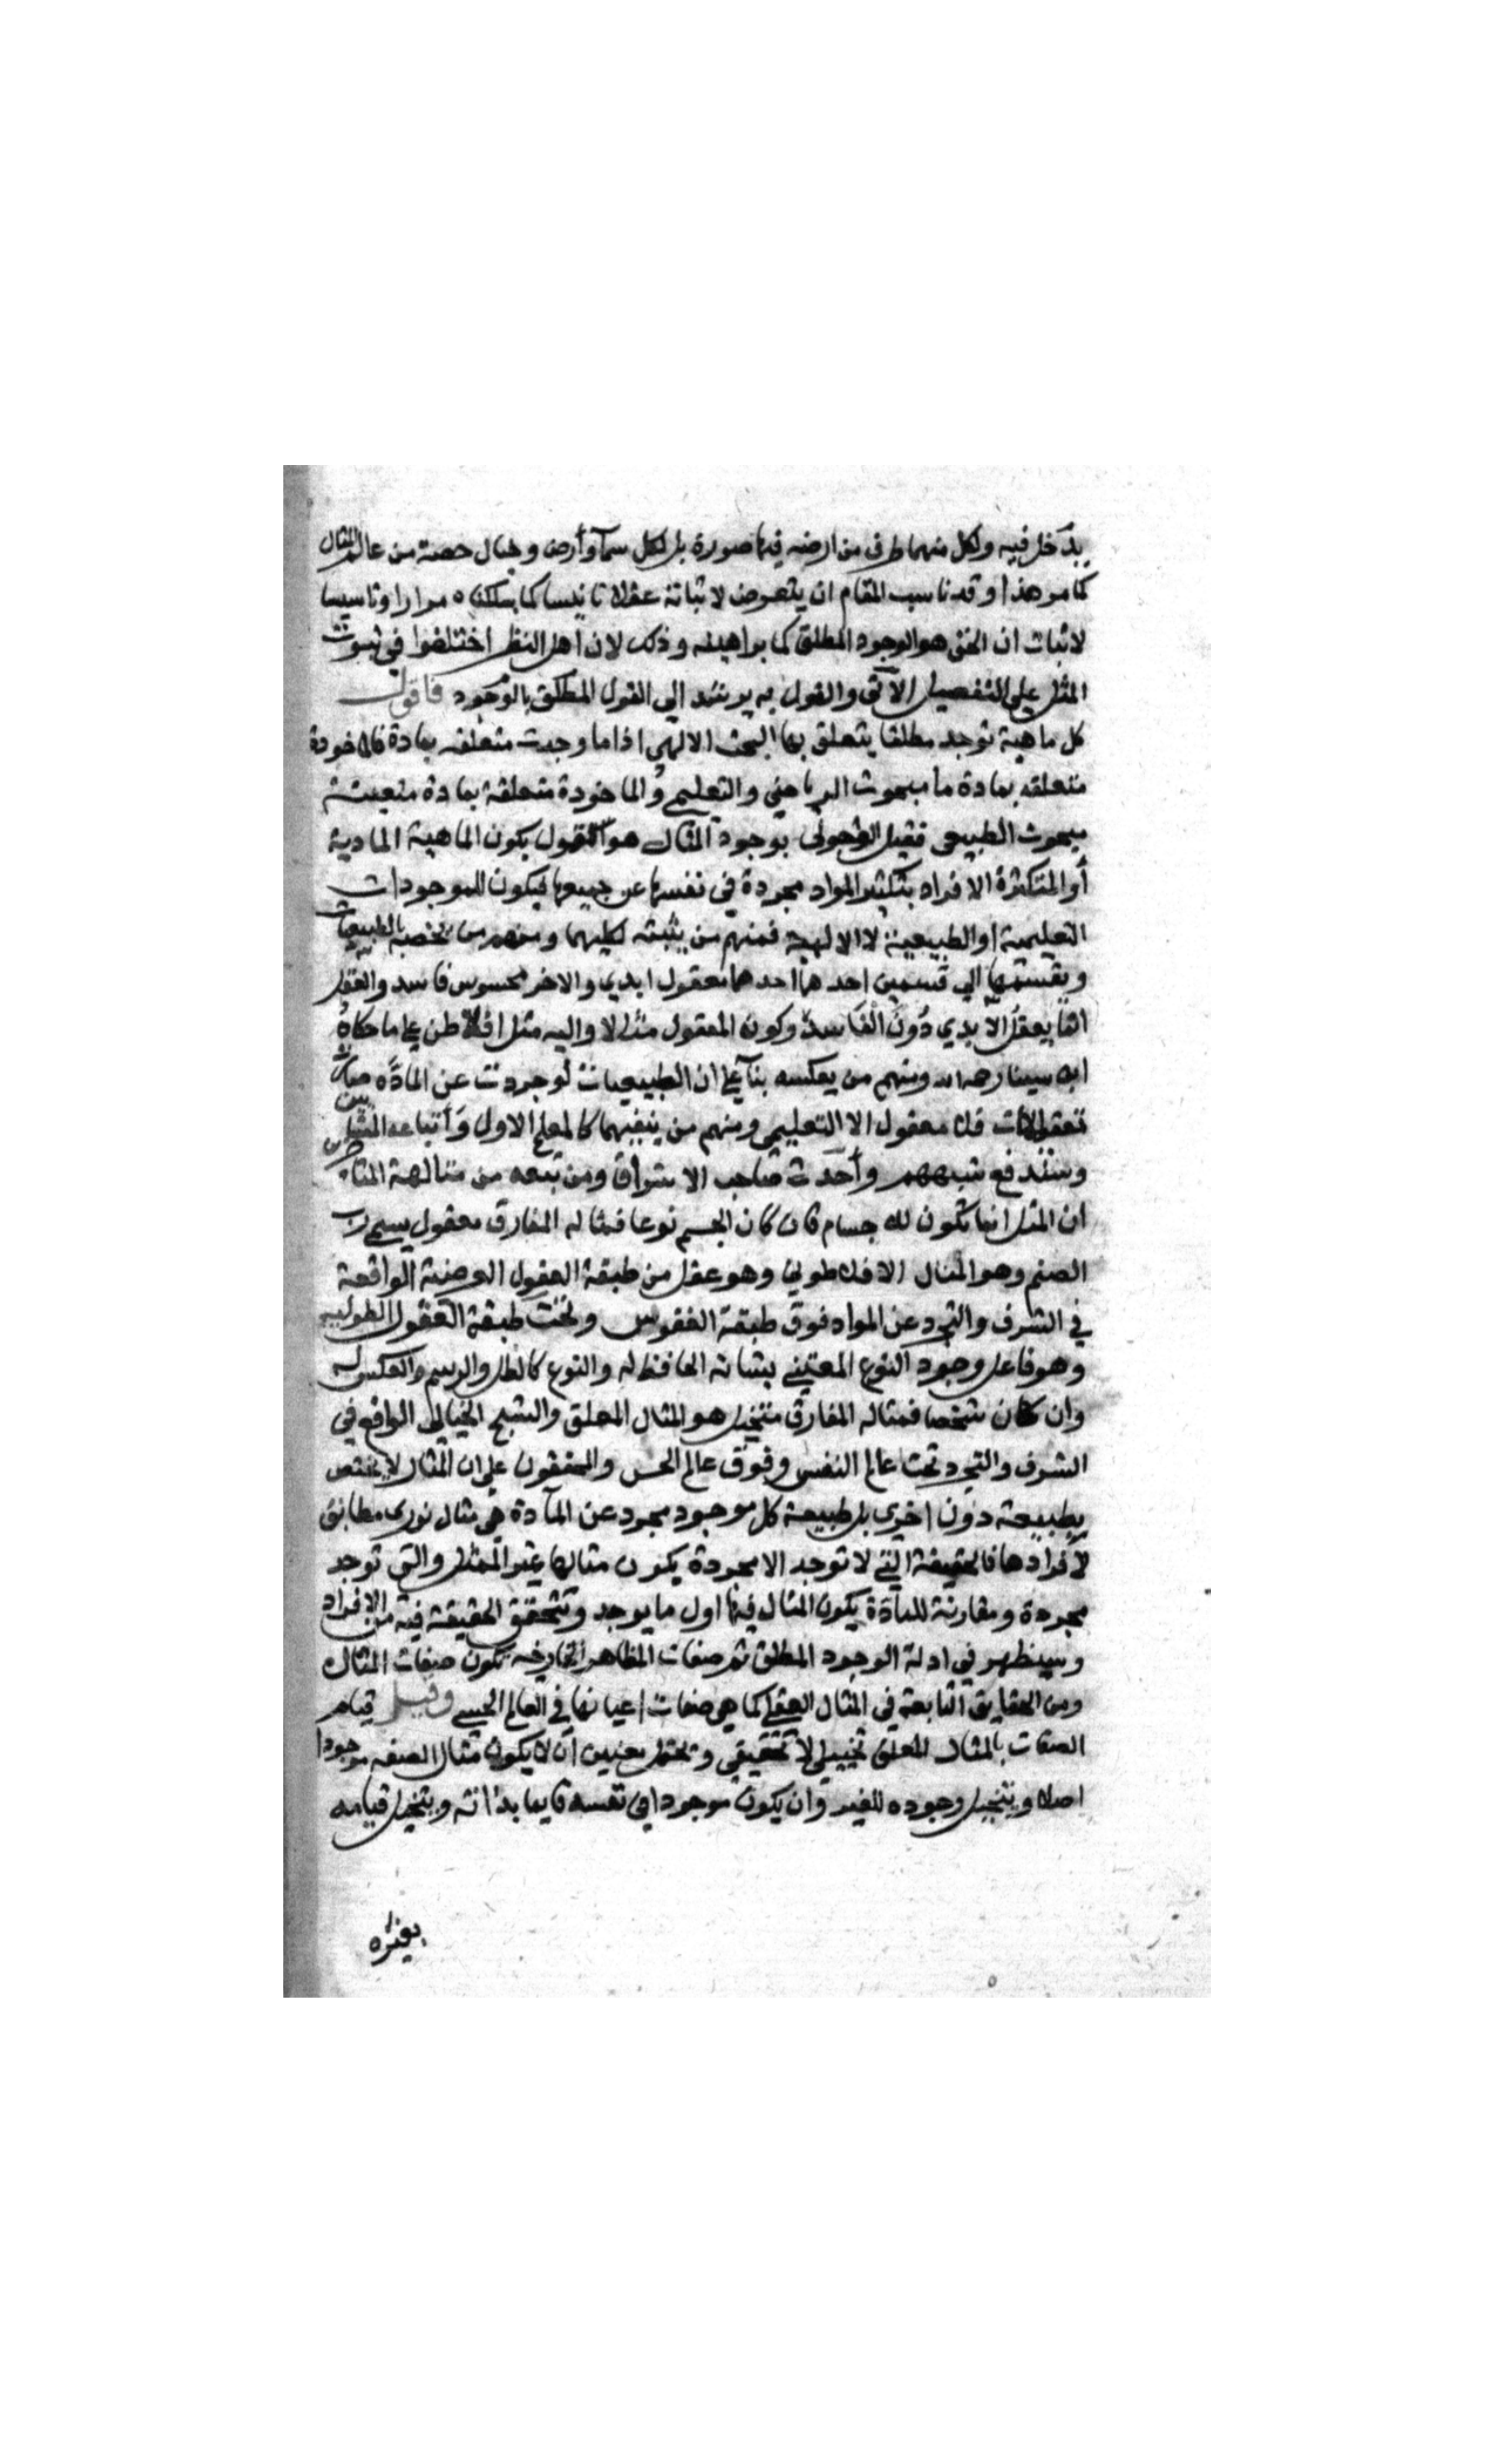 يدخل فيه ولكل منهما طرف من ارضه فيها صورة بل لكل سمآ وأرض وخيال حصة من عالم المثال
كما مر هذا وقد ناسب المقام ان يتعرض لاثباتة عقلا تانيسا كما سلكناه مرارا وتاسيسا
لاثبات ان الحق هو الوجود المطلق كما براهينه وذلك لان اهل النظر اختلفوا في ثبوت
المثل على التفصيل الآتى والقول به يرشد الى القول المطلق بالوجود فاقول
كل ماهية توجد مطلقا يتعلق بها البحث الالهى اذا ما وجدت متعلقه بمادة فالماخودة
متعلقه بمادة ما مبحوث الرياضي والتعليمي والماخودة متعلقة بمادة متعينة
مبحوث الطبيعى فقيل بوجود المثال هو القول بكون الماهية المادية
أو المتكثرة الافراد بتكثر المواد مجردة في نفسها عن جميعها فيكون للموجودات
التعليمية او الطبيعية لا الالهية فمنهم من يثبته لكليهما ومنهم من يخصه بالطبيعيات
ويقسمها الى قسمين احدهما احدهما معقول ابدي والاخر محسوس فاسد والعقل
انما يعقل الابدي دون الفاسد وكون المعقول مثالا واليه مثل افلاطن على ما حكاه
ابن سينا رحمه الله ومنهم من يعكسه بنآ على ان الطبيعيات لو جردت عن المادة صارت
تعقلات فلا معقول الا التعليمي ومنهم من ينفيهما كالمعلم الاول وأتباعه المشائين
وستندفع شبههم وأحدث صاحب الاشراق ومن تبعه من متالهة
ان المثل انما تكون للاجسام فان كان الجسم نوعا فمثاله المفارق معقول يسمى رب
الصنم وهو المثال الافلاطوني وهو عقل من طبقة العقول العرضية الواقعة
في الشرف والتجرد عن المواد فوق طبقة النفوس وتحت طبقة العقول الطولية
وهو فاعل وجود النوع المعتني بشانه الحافظ له والنوع كالظل والرسم والعكس له
وان كان شخصا فمثاله المفارق متخيل هو المثال المعلق والشبح الخيالى الواقع في
الشرف والتجرد تحت عالم النفس وفوق عالم الحس والمحققون على ان المثال لا يختص
بطبيعة دون اخرى بل طبيعة كل موجود مجرد عن المآدة هي مثال نورى مطابق
لأفرادها فالحقيقة التي لا توجد الا مجردة يكون مثالها عين الممثل والتى توجد
مجردة ومقارنة للمآدة يكون المثال فيها اول ما يوجد وتتحقق الحقيقة فيه من الافراد
وسيظهر في ادلة الوجود المطلق ثم صفات المظاهر الخارجه تكون صفات المثال
ومن الحقايق التابعة في المثال العقلى كما هي صفات اعيانها في العالم الحسي وقيل قيام
الصفات بالمثال المعلق تخييلى لا تحقيقي ويحتمل معنيين أن لا يكون مثال الصفه موجودا
اصلا ويتخيل وجوده للغير وان يكون موجودا في نفسه قايما بذاته ويتخيل قيامه
بغيره